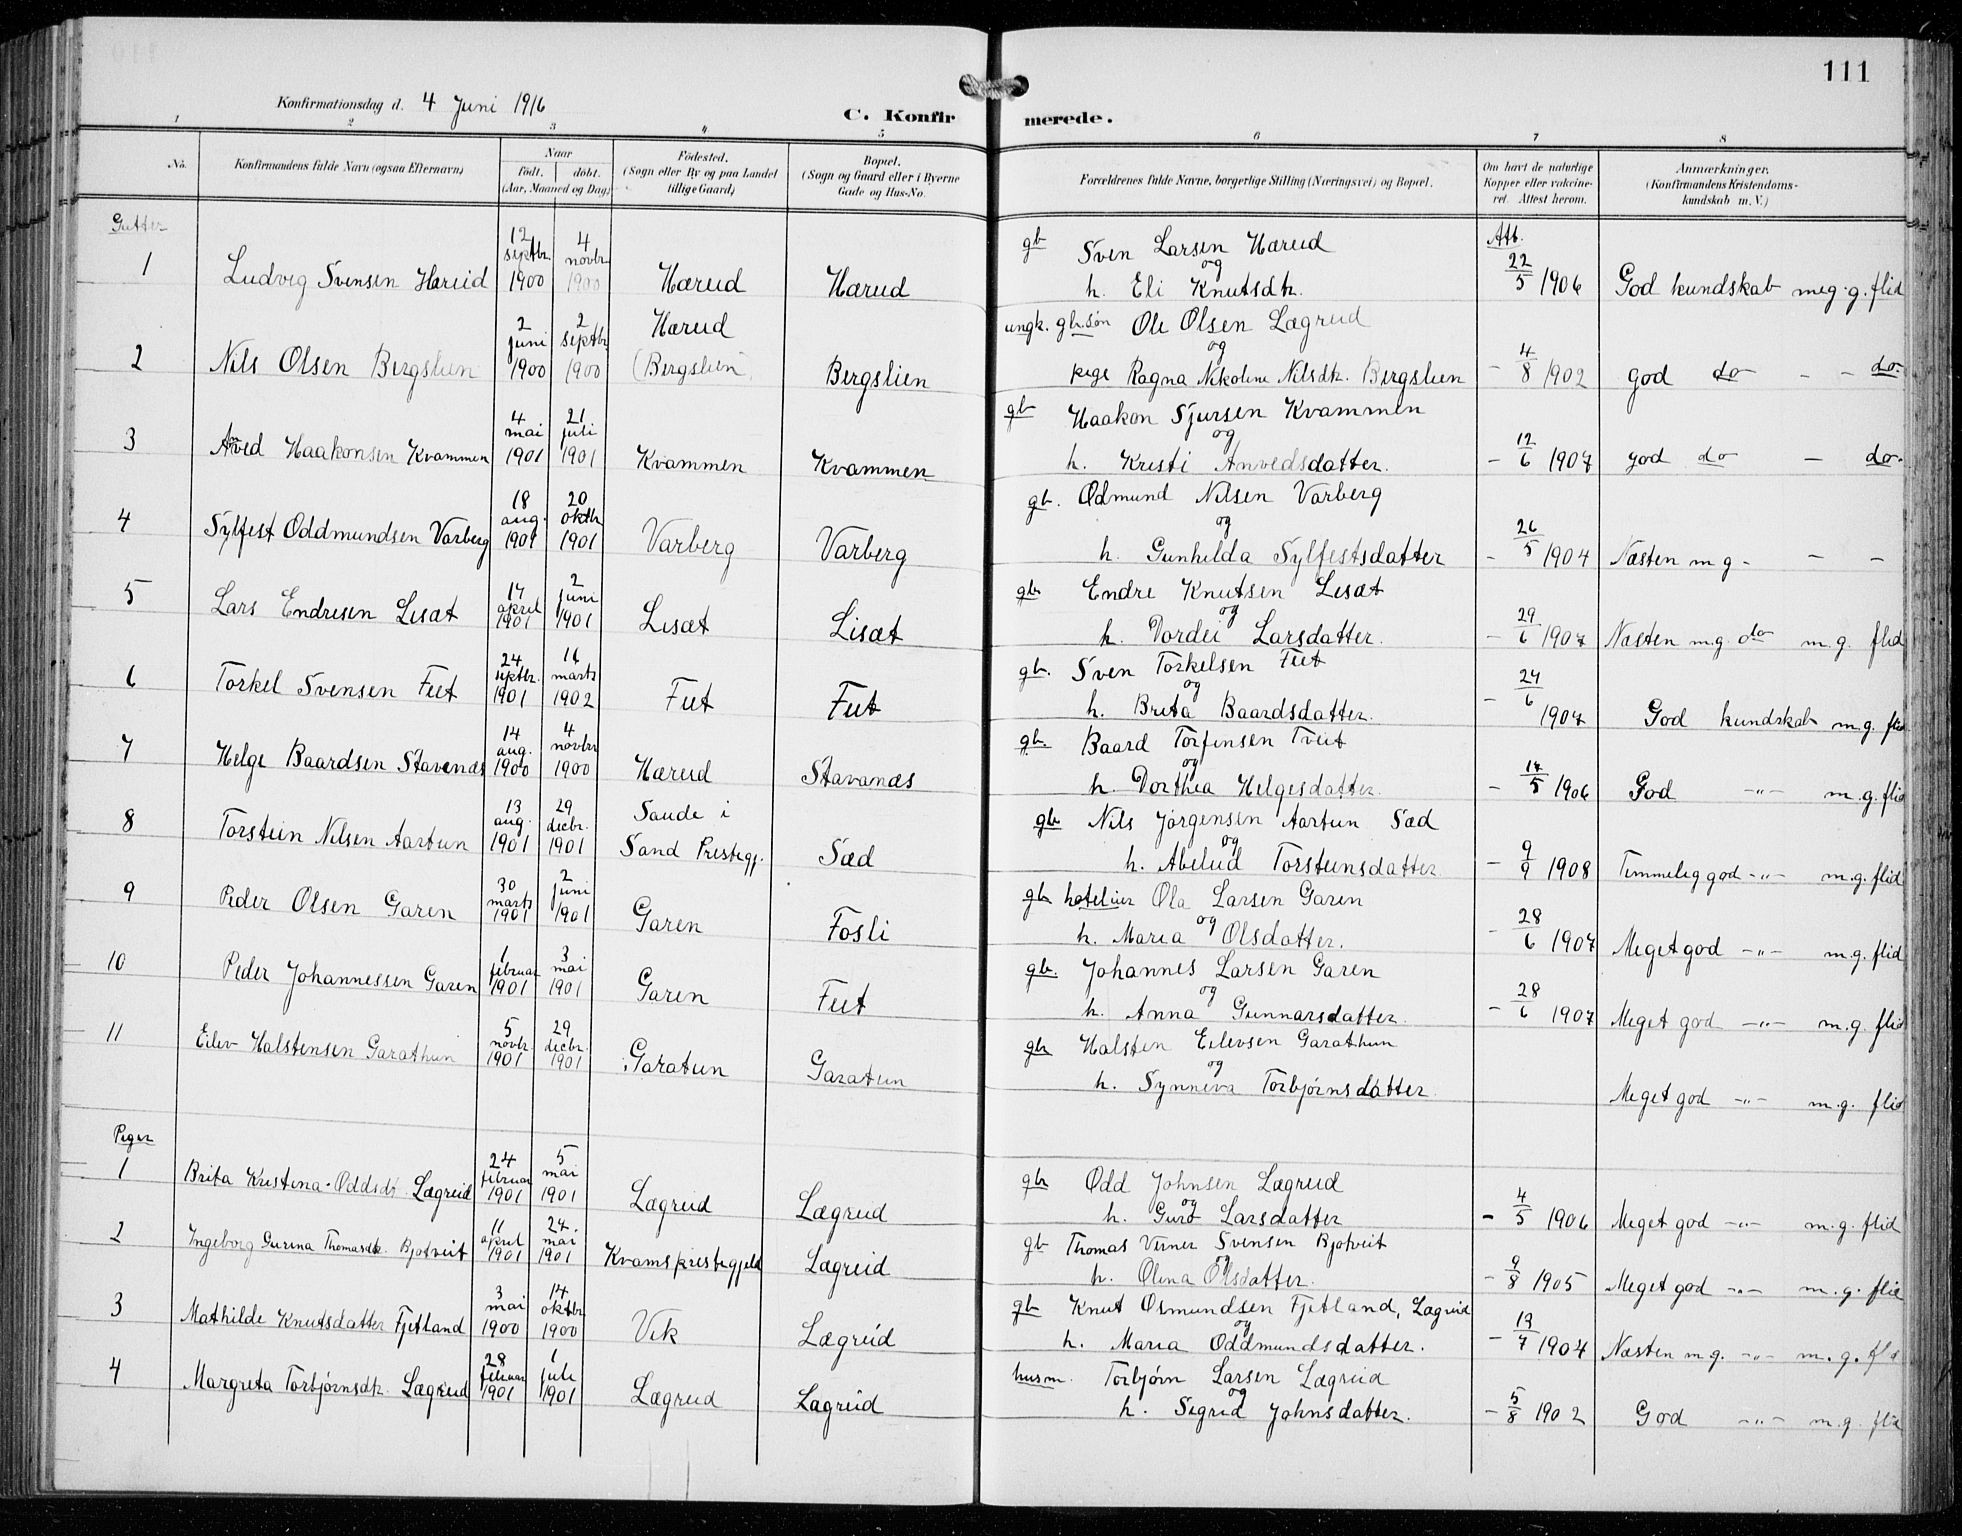 111
Konfirmationsdag d. 4 Juni 1916
C. Konfirmerede.
1 2 3 4 5 6 7 8
No.
Konfirmandens fulde Navn (ogsaa Efternavn)
Naar
født. døbt.
(Aar, Maaned og Dag)
Fødested.
(Sogn eller By og paa Landet
tillige Gaard)
Bopæl.
(Sogn og Gaard eller i Byerne
Gade og Hus-No.
Forældrenes fulde Navne, borgerlige Stilling (Næringsvei) og Bopæl.
Om havt de naturlige
Kopper eller vakcine-
ret. Attest herom.
Anmærkninger.
(Konfirmandens Kristendoms-
kundskab m. V.)
Gutter
1 Ludvig Svensen Hæreid 12 septbr. 1900 4 novbr 1900 Hæreid Hæreid gb Sven Larsen Hæreid og h. Eli Knutsdtr. Att. 22/5 1906 God kundskab meg. g. flid
2 Nils Olsen Bergslien 2 juni 1900 2 septbr 1900 Hæreid (Bergslien) Bergslien ungk. gb.søn Ole Olsen Lægreid og pige Ragna Nikoline Nilsdtr. Bergslien - 4/8 1902 god do - - do-
3 Anved Haakonsen Kvammen 4 mai 1901 21 juli 1901 Kvammen Kvammen gb Haakon Sjursen Kvammen og h. Kristi Anvedsdatter. - 12/6 1907 god do - do-
4 Sylfest Oddmundsen Varberg 18 aug. 1901 20 oktbr 1901 Varberg Varberg gb. Odmund Nilsen Varberg og h. Gunhilda Sylfestsdatter - 26/5 1904 Næsten m g - - -
5 Lars Endresen Lisæt 17 april 1901 2 juni 1901 Lisæt Lisæt gb Endre Knutsen Lisæt og h. Dordei Larsdatter. - 29/6 1907 Næsten m.g. do m.g. flid
6 Torkel Svensen Feet 24 septbr. 1901 16 marts 1902 Feet Feet gb. Sven Torkelsen Feet og h. Brita Baardsdatter. - 24/6 1907 God kundskab m.g. flid
7 Helge Baardsen Stavenæs 14 aug. 1900 4 novbr 1900 Hæreid Stavanæs gb. Baard Torfinsen Tveit og h. Dorthea Helgesdatter. - 14/5 1906 God -"- m.g. flid
8 Torstein Nilsen Aartun 13 aug. 1901 29 decbr. 1901 Saude i Sand Prestegj. Sæd gb Nils Jørgensen Aartun Sæd og h. Abelud Torsteinsdatter - 9/9 1908 Temmelig god -"- m.g. flid
9 Peder Olsen Garen 30 marts 1901 2 juni 1901 Garen Fosli gb hotelier Ola Larsen Garen og h. Maria Olsdatter. - 28/6 1907 Meget god -"- m.g. flid
10 Peder Johannessen Garen 1 februar 1901 3 mai 1901 Garen Feet gb. Johannes Larsen Garen og h. Anna Gunnarsdatter. - 28/6 1907 Meget god -"- m.g. flid
11 Eilev Halstensen Garathun 5 novbr. 1901 29 decbr. 1901 Garatun Garatun gb Halsten Eilevsen Garathun og h. Synneva Torbjørnsdatter. Meget god -"- m.g. flid
Piger
1 Brita Kristina Oddsdr. Lægreid 24 februar 1901 5 mai 1901 Lægreid Lægreid gb Odd Johnsen Lægreid og h. Guro Larsdatter - 4/5 1906 Meget god -"- m.g. flid
2 Ingeborg Gurina Thomasdtr. Bjotveit 11 april 1901 27. mai 1901 Kvams prestegjeld Lægreid gb Thomas Verner Svensen Bjotveit og h. Olina Olsdatter. - 9/8 1905 Meget god -"- m.g. flid
3 Mathilde Knutsdatter Fjetland 3 mai 1900 14 oktbr 1900 Vik Lægreid gb Knut Osmundsen Fjetland, Lægreid og h. Maria Oddmundsdatter. - 13/7 1904 Næsten m g. -"- m.g. flid
4 Margreta Torbjørnsdtr. Lægreid 28 februar 1901 1 juli 1901 Lægreid Lægreid husm. Torbjørn Larsen Lægreid og h. Sigrid Johnsdatter. - 5/8 1902 God -"- m.g. flid